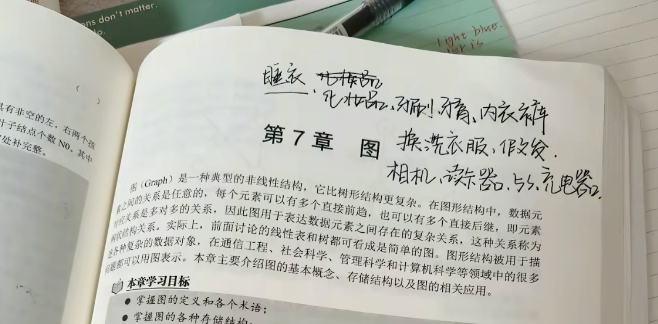 ons don't matter.
light blue.
睡衣
化妆品、牙刷牙膏、内衣裤
换洗衣服、假发.
相机、读卡器、充电器.
第 7 章 图
(  )
具有非空的左，右两个孩
叶子结点个数 N0，其中
处补完整。
图（Graph）是一种典型的非线性结构，它比树形结构更复杂。在图形结构中，数据元
素之间的关系是任意的，每个元素可以有多个直接前趋，也可以有多个直接后继，即元素
关系是多对多的关系，因此图用于表达数据元素之间存在的复杂关系，这种关系称为
结构关系。实际上，前面讨论的线性表和树都可看成是简单的图。图形结构被用于描
述各种复杂的数据对象，在通信工程、社会科学、管理科学和计算机科学等领域中的很多
问题都可以用图表示。本章主要介绍图的基本概念、存储结构以及图的相关应用。
本章学习目标
● 掌握图的定义和各个术语；
● 掌握图的各种存储结构；